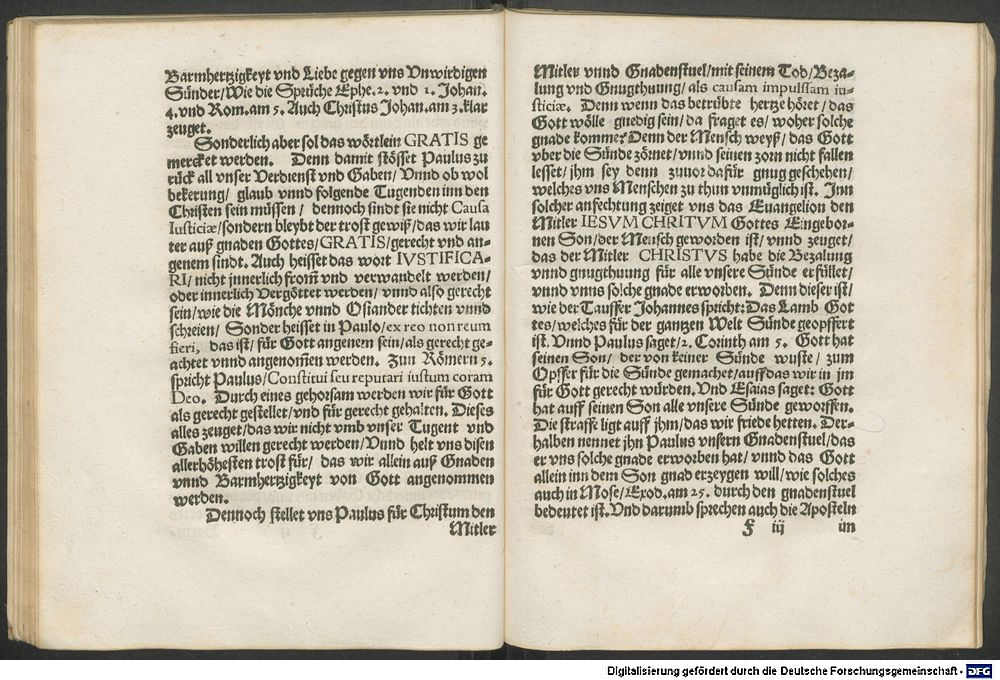 Barmhertzigkeyt vnd Liebe gegen vns Vnwirdigen
Sünder/Wie die Sprüche Ephe.2. vnd 1. Johan.
4.vnd Rom.am 5. Auch Christus Johan.am 3.klar
zeuget.
Sonderlich aber sol das wörtlein GRATIS ge
mercket werden. Denn damit stösset Paulus zu
rück all vnser Verdienst vnd Gaben/ Vnnd ob wol
bekerung/ glaub vnnd folgende Tugenden inn den
Christen sein müssen/ dennoch sindt sie nicht Causa
Iusticiæ/sondern bleybt der trost gewiß/das wir lau
ter auß gnaden Gottes/GRATIS/gerecht vnd an-
genem sindt. Auch heisset das wort IVSTIFICA-
RI/ nicht jnnerlich from̃ vnd verwandelt werden/
oder innerlich Vergöttet werden/ vnnd also gerecht
sein/wie die Mönche vnnd Osiander tichten vnnd
schreien/ Sonder heisset in Paulo/ex reo non reum
fieri, das ist/ für Gott angenem sein/als gerecht ge-
achtet vnnd angenom̃en werden. Zun Römern 5.
spricht Paulus/Constitui seu reputari iustum coram
Deo. Durch eines gehorsam werden wir für Gott
als gerecht gestellet/vnd für gerecht gehalten. Dieses
alles zeuget/das wir nicht vmb vnser Tugent vnd
Gaben willen gerecht werden/Vnnd helt vns disen
allerhöhesten trost für/ das wir allein auß Gnaden
vnnd Barmhertzigkeyt von Gott angenommen
werden.
Dennoch stellet vns Paulus für Christum den
Mitler
Mitler vnnd Gnadenstuel/mit seinem Tod/Beza-
lung vnd Gnugthuung/ als causam impulssam iu-
sticiæ. Denn wenn das betrübte hertze höret/ das
Gott wölle gnedig sein/da fraget es/ woher solche
gnade komme? Denn der Mensch weyß/ das Gott
vber die Sünde zörnet/vnnd seinen zorn nicht fallen
lesset/jhm sey denn zuuor dafür gnug geschehen/
welches vns Menschen zu thun vnmüglich ist. Inn
solcher anfechtung zeiget vns das Euangelion den
Mitler IESVM CHRITVM Gottes Eingebor-
nen Son/der Mensch geworden ist/vnnd zeuget/
das der Mitler CHRISTVS habe die Bezalung
vnnd gnugthuung für alle vnsere Sünde erfüllet/
vnnd vnns solche gnade erworben. Denn dieser ist/
wie der Tauffer Johannes spricht: Das Lamb Got
tes/welches für der gantzen Welt Sünde geopffert
ist. Vnnd Paulus saget/2. Corinth am 5. Gott hat
seinen Son/ der von keiner Sünde wuste/ zum
Opffer für die Sünde gemachet/auff das wir in jm
für Gott gerecht würden. Vnd Esaias saget: Gott
hat auff seinen Son alle vnsere Sünde geworffen.
Die straffe ligt auff jhm/das wir friede hetten. Der-
halben nennet jhn Paulus vnsern Gnadenstuel/das
er vns solche gnade erworben hat/vnnd das Gott
allein inn dem Son gnad erzeygen will/wie solches
auch in Mose/Exod.am 25. durch den gnadenstuel
bedeutet ist. Vnd darumb sprechen auch die Aposteln
F iij im
Digitalisierung gefördert durch die Deutsche Forschungsgemeinschaft - DFG